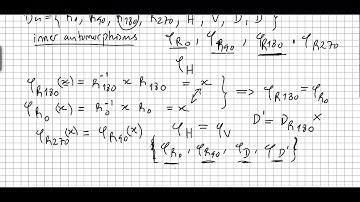 D₄ = { R₀, R₉₀, R₁₈₀, R₂₇₀, H, V, D, D' }
inner automorphisms φ_R₀, φ_R₉₀, φ_R₁₈₀, φ_R₂₇₀
φ_H
φ_R₁₈₀(x) = R₁₈₀⁻¹ x R₁₈₀ = x
φ_R₀(x) = R₀⁻¹ x R₀ = x
⟹ φ_R₁₈₀ = φ_R₀
φ_R₂₇₀(x) = φ_R₉₀(x)
φ_H = φ_V
D' = D R₁₈₀ x
{ φ_R₀, φ_R₉₀, φ_D, φ_D' }